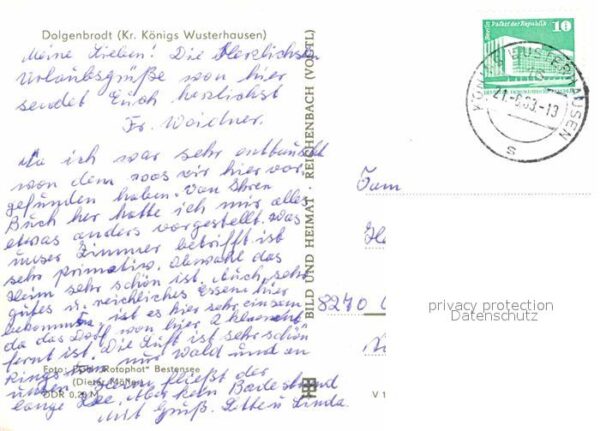 Dolgenbrodt (Kr. Königs Wusterhausen)
Meine Lieben! Die Herzlichsten
Urlaubsgrüße von hier
sendet Euch herzlichst
Fr. Waidner.
Da ich war sehr enttäuscht
von dem was wir hier vor-
gefunden haben. Von Ihren
Buch her hatte ich mir alles
etwas anders vorgestellt. Was
unser Zimmer betrifft ist
sehr primativ. Obwohl das
Heim sehr schön ist. Auch sehr
gutes u. reichliches Essen hier
bekommen, ist es hier sehr einsam
da das Dorf von hier 2 klm ent-
fernt ist. Die Luft ist sehr schön
rings nur Wald und an
Foto: "Rotophot" Bestensee
unser Heim fließt der
(Dieter Möller)
lange See. Aber kein Badestrand
DDR 0,20 M
Mit Gruß. Lotte u. Linda.
BILD UND HEIMAT · REICHENBACH (VOGTL)
Berlin Palast der Republik 10
KÖNIGS WUSTERHAUSEN
15
21.-6.83.-13
s
Fam
8270
privacy protection
Datenschutz
V 1